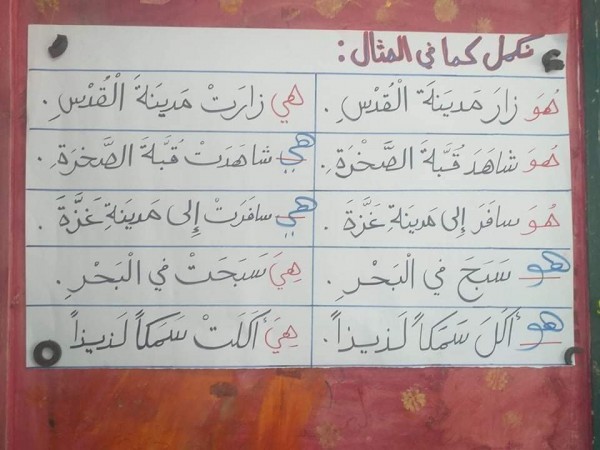 نكمل كما في المثال :
هُوَ زارَ مَدينَةَ الْقُدْسِ . هِيَ زارَتْ مَدينَةَ الْقُدْسِ .
هُوَ شاهَدَ قُبَّةَ الصَّخْرَةِ . هي شاهَدَتْ قُبَّةَ الصَّخْرَةِ .
هُوَ سافَرَ إِلى مَدينَةِ غَزَّةَ . هي سافَرَتْ إِلى مَدينَةِ غَزَّةَ .
هو سَبَحَ في الْبَحْرِ . هِيَ سَبَحَتْ في الْبَحْرِ .
هو أَكَلَ سَمَكاً لَذيذاً . هِيَ أَكَلَتْ سَمَكاً لَذيذاً